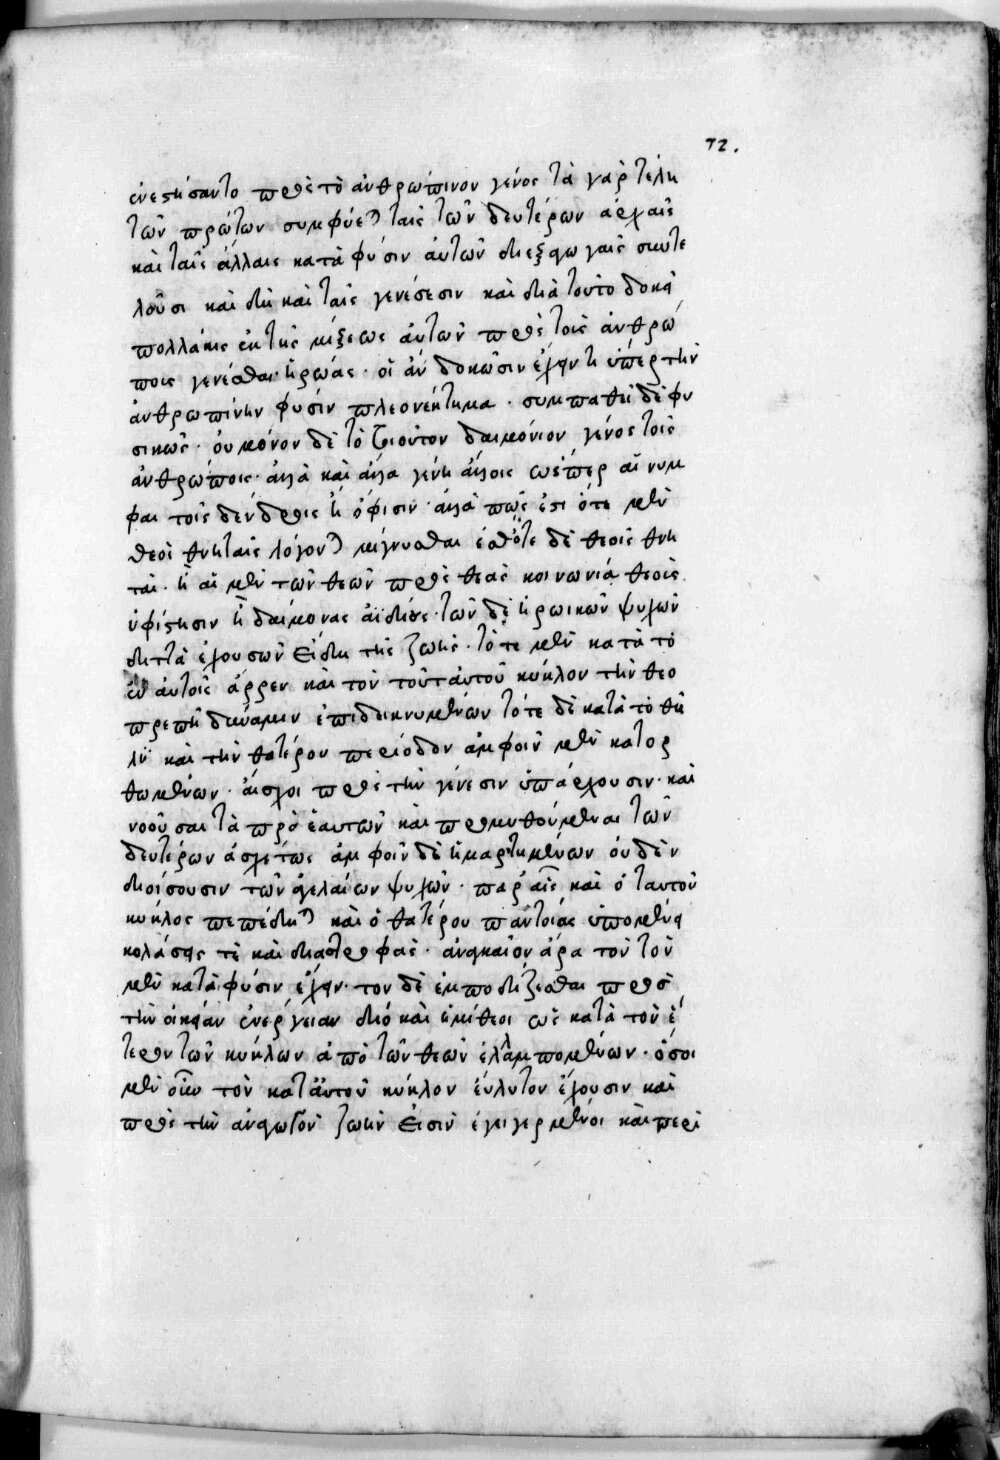 72.
ἐνεστήσαντο πρὸς τὸ ἀνθρώπινον γένος τὰ γὰρ τέλη
τῶν πρώτων συμφύεται ταῖς τῶν δευτέρων ἀρχαῖς
καὶ ταῖς ἄλλαις κατὰ φύσιν αὐτῶν διεξαγωγαῖς συντε
λοῦσι καὶ δὴ καὶ ταῖς γενέσεσιν καὶ διὰ τοῦτο δοκεῖ
πολλάκις ἐκ τῆς μίξεως αὐτῶν πρὸς τοῖς ἀνθρώ
ποις γενέσθαι ἥρωας· οἳ ἂν δοκῶσιν ἔχειν τι ὑπὲρ τὴν
ἀνθρωπίνην φύσιν πλεονέκτημα· συμπαθεῖ δὲ φυ
σικῶς· οὐ μόνον δὲ τὸ τοιοῦτον δαιμόνιον γένος τοῖς
ἀνθρώποις· ἀλλὰ καὶ ἄλλα γένη ἄλλοις ὥσπερ αἱ νύμ
φαι τοῖς δένδροις ἢ ὄφισιν· ἀλλὰ πῶς ἔστι ὅτε μὲν
θεοὶ θνηταῖς λέγονται μίγνυσθαι ἔσθ' ὅτε δὲ θεοῖς θνη
ταί· ἢ αἱ μὲν τῶν θεῶν πρὸς θεὰς κοινωνίαι θεοὺς
ὑφίστησιν ἢ δαίμονας ἀϊδίους· τῶν δὲ ἡρωικῶν ψυχῶν
διττὰ ἐχουσῶν εἴδη τῆς ζωῆς· τό τε μὲν κατὰ τὸ
ἐν αὐτοῖς ἄρρεν καὶ τὸν τοῦ ταὐτοῦ κύκλον τὴν θεο
πρεπῆ δύναμιν ἐπιδεικνυμένων τό τε δὲ κατὰ τὸ θῆ
λυ καὶ τὴν θατέρου περίοδον ἀμφοῖν μὲν κατορ
θωμένων· ἄσχετοι πρὸς τὴν γένεσιν ὑπάρχουσιν· καὶ
νοοῦσαι τὰ πρὸ ἑαυτῶν καὶ προμηθούμεναι τῶν
δευτέρων ἀσχέτως ἀμφοῖν δὲ ἡμαρτημένων οὐδὲν
διοίσουσιν τῶν ἀγελαίων ψυχῶν· παρ' αἷς καὶ ὁ ταὐτοῦ
κύκλος πεπέδηται καὶ ὁ θατέρου παντοίας ὑπομένει
κολάσεις τε καὶ διαστροφάς· ἀναγκαῖον ἄρα τοῦτον
μὲν κατὰ φύσιν ἔχειν· τὸν δὲ ἐμποδίζεσθαι πρὸς
τὴν οἰκείαν ἐνέργειαν διὸ καὶ ἡμίθεοι ὡς κατὰ τὸν ἕ
τερον τῶν κύκλων ἀπὸ τῶν θεῶν ἐλλαμπομένων· ὅσοι
μὲν οὖν τὸν κατ' αὐτοῦ κύκλον εὔλυτον ἔχουσιν καὶ
πρὸς τὴν ἀνάγωγον ζωὴν εἰσὶν ἐγειγερμένοι καὶ περὶ